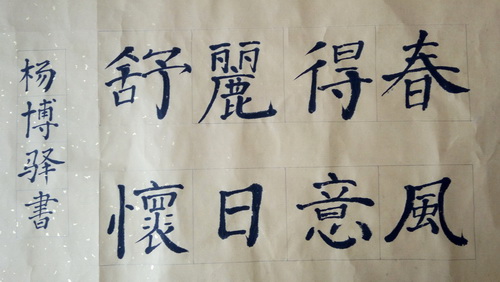 春風
得意
麗日
舒懷
杨博驿書